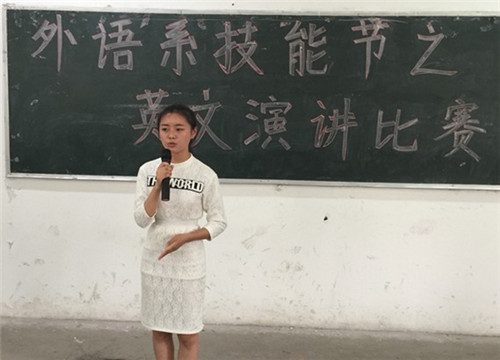 外语系技能节之
英文演讲比赛
THE WORLD